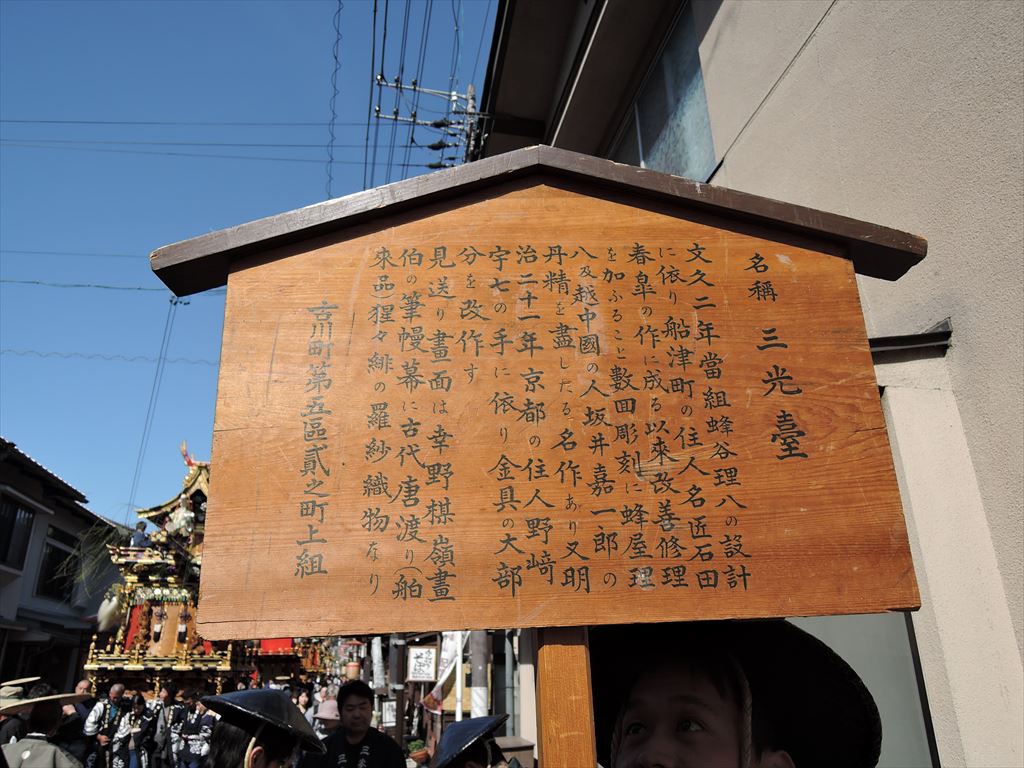 名稱 三光臺
文久二年當組蜂谷理八の設計
に依り船津町の住人名匠石田
春皐の作に成る以來改善修理
を加ふること數回彫刻に蜂屋理
八及越中國の人坂井嘉一郎の
丹精を盡したる名作あり又明
治二十一年京都の住人野﨑
宇七の手に依り金具の大部
分を改作す
見送り畫面は幸野楳嶺畫
伯の筆幔幕に古代唐渡り(舶
來品)猩々緋の羅紗織物なり
古川町第五區貳之町上組